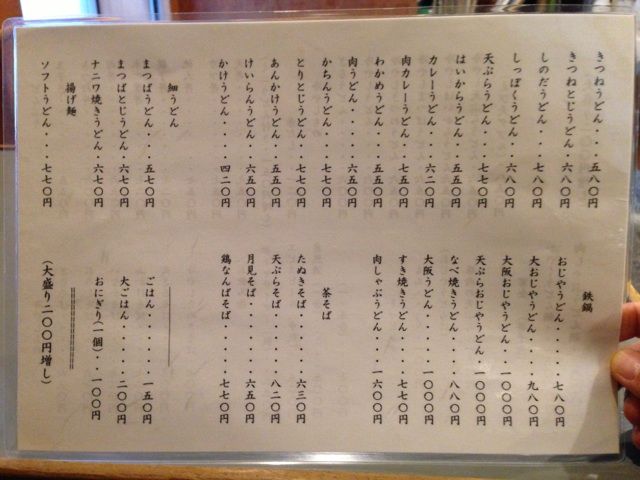 きつねうどん・・・五八〇円
きつねとじうどん・六八〇円
しのだうどん・・・七八〇円
しっぽくうどん・・六八〇円
天ぷらうどん・・・七七〇円
はいからうどん・・五五〇円
カレーうどん・・・六二〇円
肉カレーうどん・・七五〇円
わかめうどん・・・五五〇円
肉うどん・・・・・六五〇円
かちんうどん・・・七七〇円
とりとじうどん・・七七〇円
あんかけうどん・・五五〇円
けいらんうどん・・六五〇円
かけうどん・・・・四二〇円
細うどん
まつばうどん・・・五七〇円
まつばとじうどん・六七〇円
ナニワ焼きうどん・六七〇円
揚げ麺
ソフトうどん・・・七七〇円
鉄鍋
おじやうどん・・・・・七八〇円
大おじやうどん・・・・九八〇円
大阪おじやうどん・・一〇〇〇円
天ぷらおじやうどん・一〇〇〇円
なべ焼きうどん・・・・八八〇円
大阪うどん・・・・・一〇〇〇円
すき焼きうどん・・・・七七〇円
肉しゃぶうどん・・・一六〇〇円
茶そば
たぬきそば・・・・・・六三〇円
天ぷらそば・・・・・・八二〇円
月見そば・・・・・・・六五〇円
鶏なんばそば・・・・・七七〇円
ごはん・・・・・・一五〇円
大ごはん・・・・・二〇〇円
おにぎり(一個)・・一〇〇円
(大盛り二〇〇円増し)